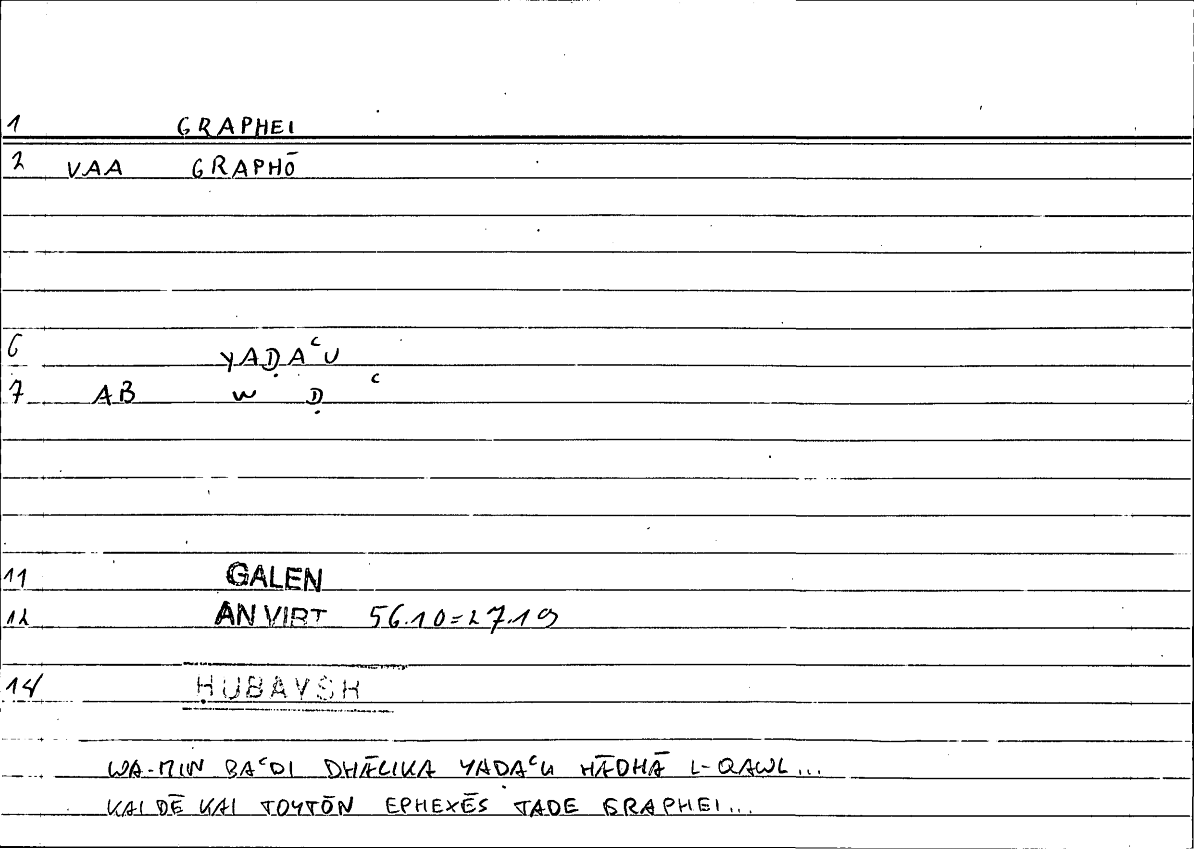 1 GRAPHEI
2 VAA GRAPHŌ
6 YAḌAʿU
7 AB W Ḍ ʿ
11 GALEN
12 AN VIRT 56.10=27.19
14 ḤUBAYSH
WA-MIN BAʿDI DHĀLIKA YADAʿU HĀDHĀ L-QAWL...
KAI DĒ KAI TOYTŌN EPHEXĒS TADE GRAPHEI...